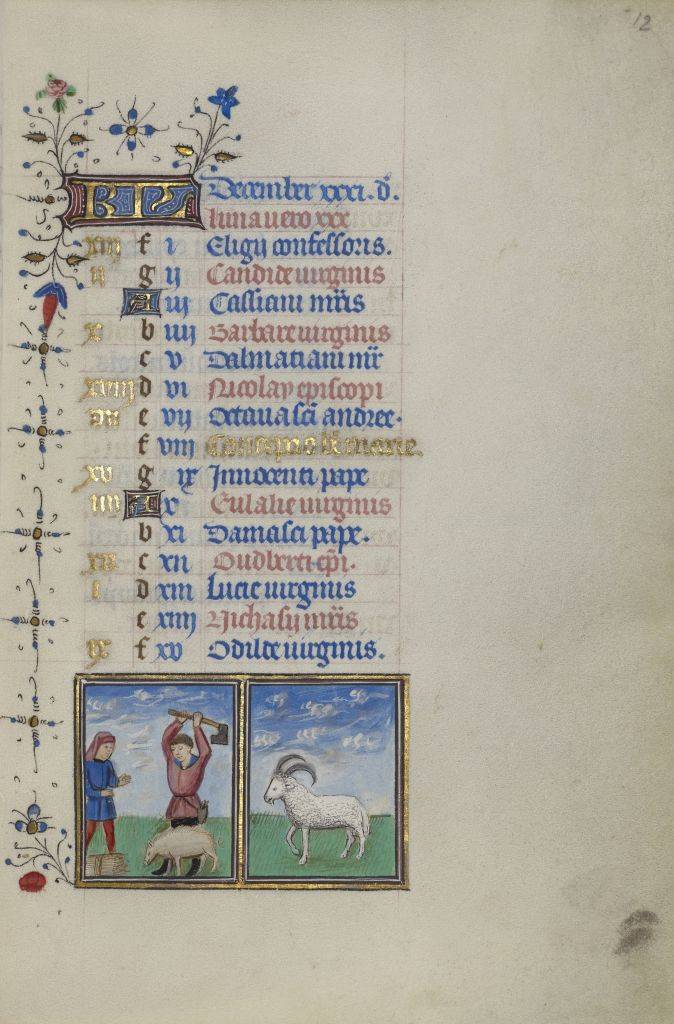 12
KL December xxxi. d.
luna uero xxx
f i Eligij confessoris.
ij g ij Candide uirginis
A iij Cassiani mris
x b iiij Barbare uirginis
c v Dalmatiani mr
xviij d vi Nicolay episcopi
vii e vij Octaua sci andree.
f viij Conceptio be marie.
xv g ix Innocenti pape
iiij A x Eulalie uirginis
b xi Damasci pape.
xii c xii Oudberti epi.
i d xiii Lucie uirginis
e xiiij Nichasij mris
ix f xv Odilde uirginis.